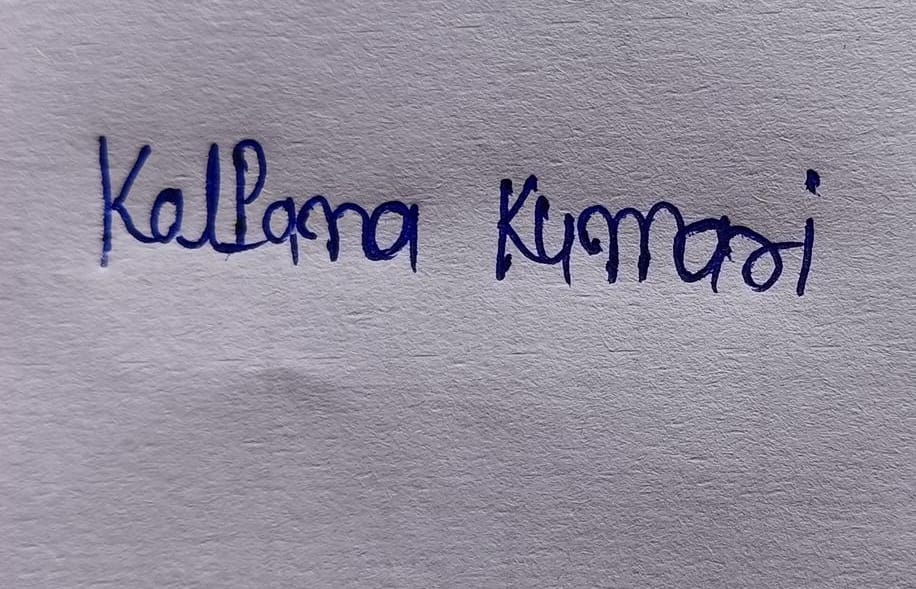 Kalpana Kumari